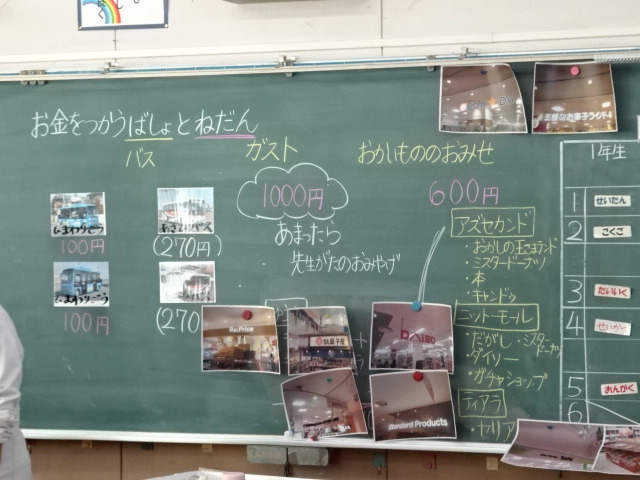 お金をつかうばしょとねだん
バス
ひまわりごう
100円
あさひバス
(270円)
ひまわりごう
100円
(270
ガスト
1000円
あまったら
先生がたのおみやげ
おかいもののおみせ
600円
アズセカンド
・おかしの王さまランド
・ミスタードーナツ
・本
・キャンドゥ
ニットーモール
・だがし・ミスタードーナツ
・ダイソー
・ガチャショップ
ティアラ
・セリア
Re:Price
駄菓子屋
DAISO
Standard Products
お菓子ランド
1年生
1 せいたん
2 こくご
3 たいいく
4 せいかつ
5 おんがく
6